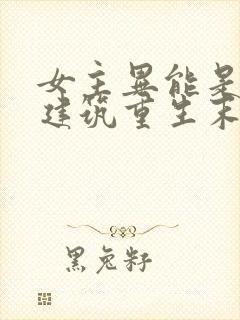 女主異能是
建筑重生末
黑兔籽